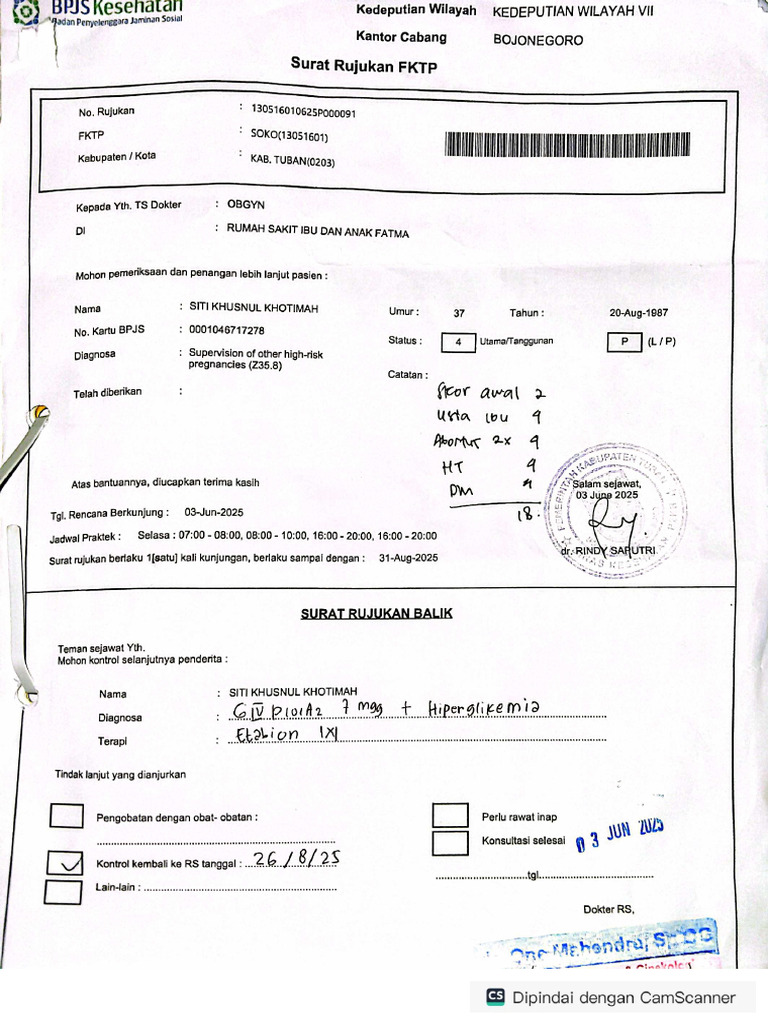 BPJS Kesehatan
Badan Penyelenggara Jaminan Sosial
Kedeputian Wilayah KEDEPUTIAN WILAYAH VII
Kantor Cabang BOJONEGORO
Surat Rujukan FKTP
No. Rujukan : 130516010625P000091
FKTP : SOKO(13051601)
Kabupaten / Kota : KAB. TUBAN(0203)
Kepada Yth. TS Dokter : OBGYN
DI : RUMAH SAKIT IBU DAN ANAK FATMA
Mohon pemeriksaan dan penangan lebih lanjut pasien :
Nama : SITI KHUSNUL KHOTIMAH Umur : 37 Tahun : 20-Aug-1987
No. Kartu BPJS : 0001046717278 Status : 4 Utama/Tanggunan P (L / P)
Diagnosa : Supervision of other high-risk
pregnancies (Z35.8)
Catatan :
Telah diberikan :
Skor awal 2
Usia ibu 4
Abortus 2x 4
HT 4
DM 4
18
Atas bantuannya, diucapkan terima kasih
Salam sejawat,
03 June 2025
Tgl. Rencana Berkunjung : 03-Jun-2025
Jadwal Praktek : Selasa : 07:00 - 08:00, 08:00 - 10:00, 16:00 - 20:00, 16:00 - 20:00
dr. RINDY SAPUTRI
Surat rujukan berlaku 1[satu] kali kunjungan, berlaku sampai dengan : 31-Aug-2025
SURAT RUJUKAN BALIK
Teman sejawat Yth.
Mohon kontrol selanjutnya penderita :
Nama : SITI KHUSNUL KHOTIMAH
Diagnosa : GIV P101A2 7 mgg + Hiperglikemia
Terapi : 1x1
Tindak lanjut yang dianjurkan
Pengobatan dengan obat- obatan :
Perlu rawat inap
Konsultasi selesai 03 JUN 2025
Kontrol kembali ke RS tanggal : 26/8/25
tgl.
Lain-lain :
Dokter RS,
Mahendra, SpOG
CS Dipindai dengan CamScanner